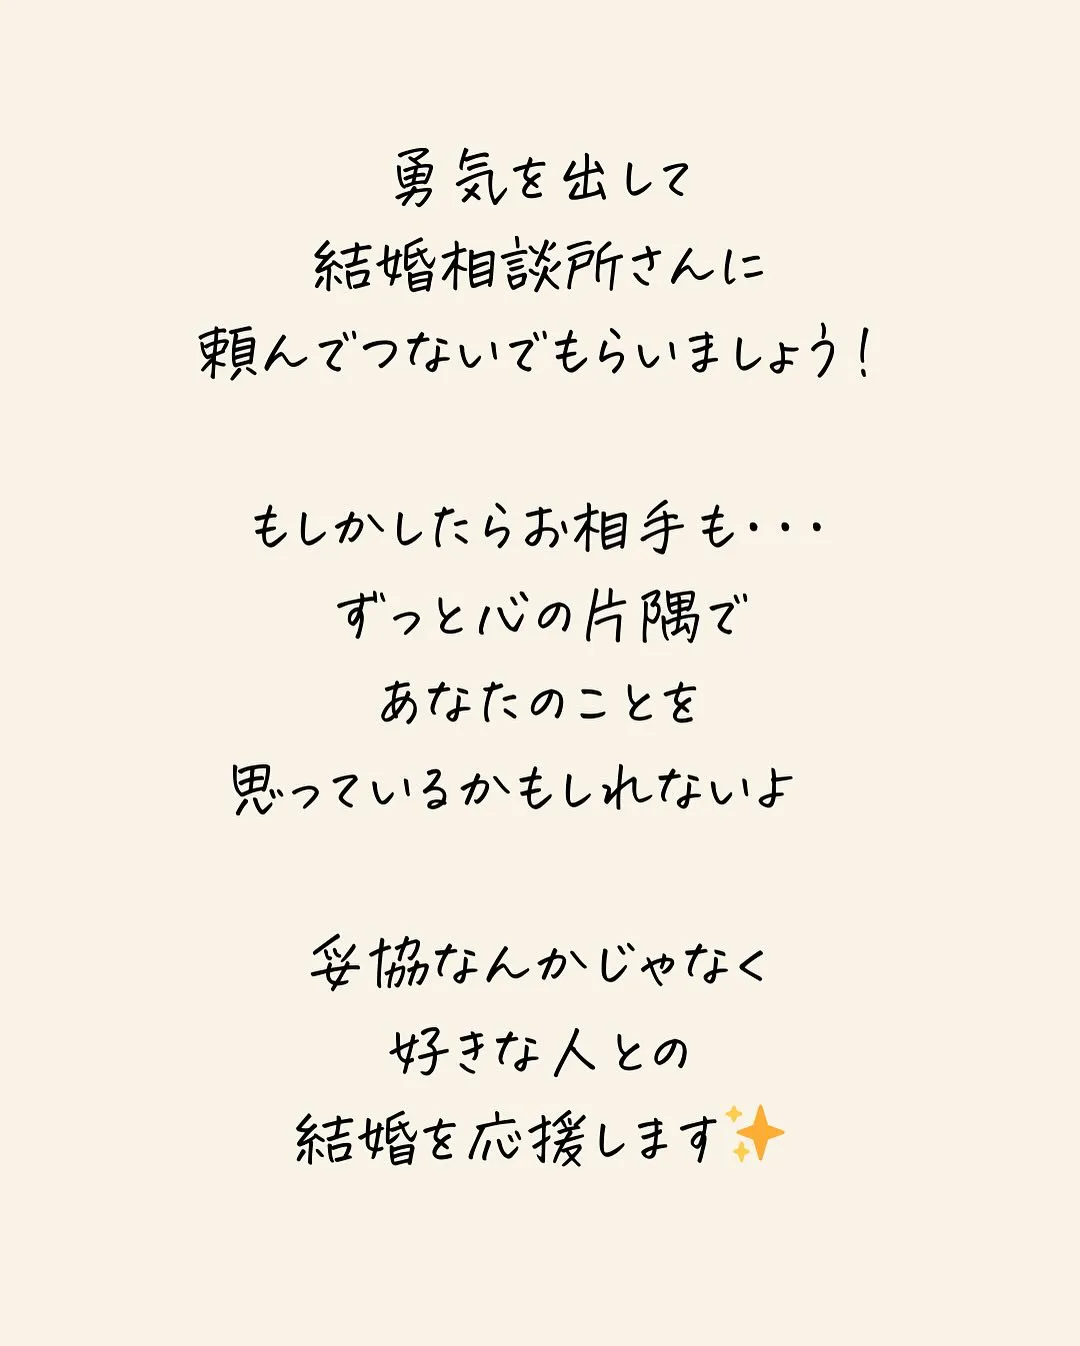 勇気を出して
結婚相談所さんに
頼んでつないでもらいましょう!
もしかしたらお相手も・・・
ずっと心の片隅で
あなたのことを
思っているかもしれないよ
妥協なんかじゃなく
好きな人との
結婚を応援します✨